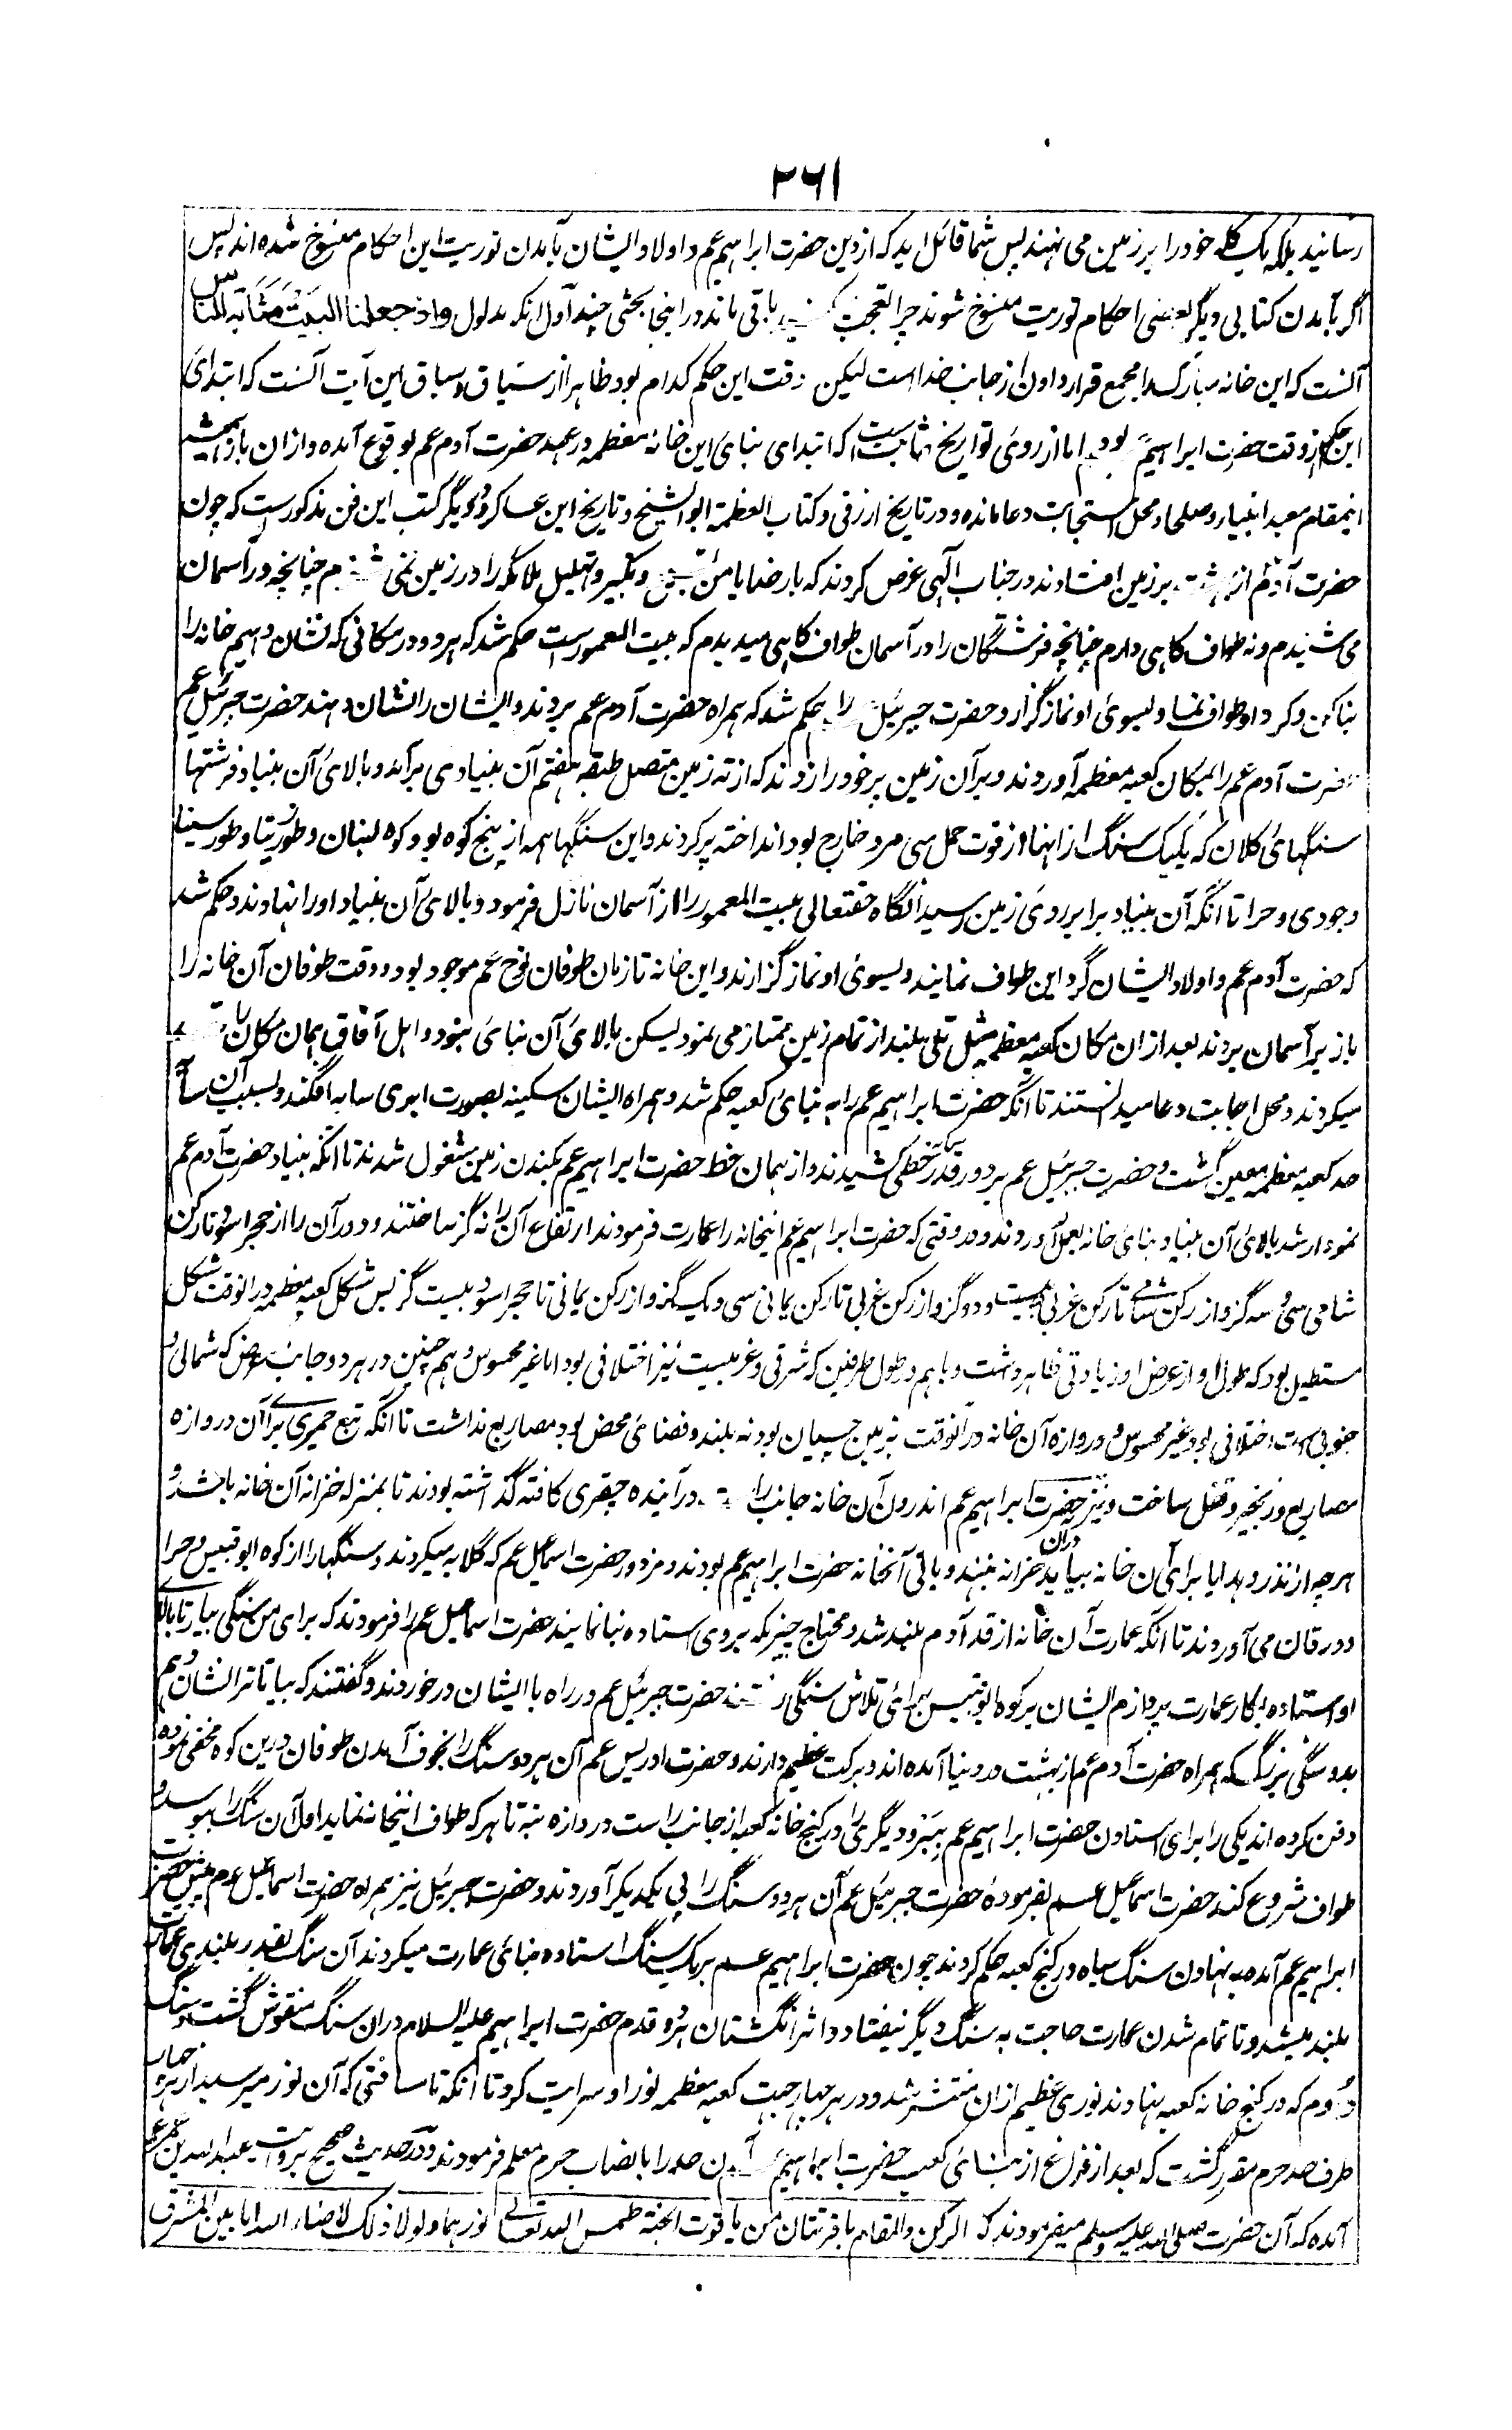 ۲۶۱
رسانید بلکه یک کله خود را بر زمین می نهند پس شما قائل اید که از دین حضرت ابراهیم عم و اولاد ایشان بآمدن توریت این احکام منسوخ شده اند پس
اگر بآمدن کتابی دیگر بعضی احکام توریت منسوخ شوند چرا تعجب باقی ماند در اینجا بحثی چند اول انکه مدلول واذ جعلنا البیت مثابة للناس
آنست که این خانه مبارک را مجمع قرار دادن از جانب خداست لیکن وقت این حکم کدام بود ظاهرا از سیاق و سباق این آیت آنست که ابتدای
این حکم از وقت حضرت ابراهیم بود اما از روی تواریخ ثابت است که ابتدای بنای این خانهٔ معظمه در عهد حضرت آدم عم بوقوع آمده و ازان باز همیشه
اینمقام معبد انبیا و صلحا و محل استجابت دعا مانده و در تاریخ ازرقی و کتاب العظمة ابو الشیخ و تاریخ ابن عساکر و دیگر کتب این فن مذکورست که چون
حضرت آدم از بهشت بر زمین افتادند در جناب الهی عرض کردند که بار خدایا من و تکبیر و تهلیل ملائکه را در زمین نمی شنوم چنانچه در آسمان
می شنیدم و نه طواف گاهی دارم چنانچه فرشتگان را در آسمان طواف گاهی میدیدم که بیت المعمورست حکم شد که برو و در مکانی که نشان دهیم خانه را
بنا کن و گرد او طواف نما و بسوی او نماز گزار و حضرت جبرئیل را حکم شد که همراه حضرت آدم عم بروند و ایشان را نشان دهند حضرت جبرئیل عم
حضرت آدم عم را بمکان کعبه معظمه آوردند و بر آن زمین پر خود را زدند که از ته زمین متصل طبقه هفتم آن بنیادی برآمد و بالای آن بنیاد فرشتها
سنگهای کلان که یک یک سنگ ازانها از قوت حمل سی مرد خارج بود انداخته پر کردند و این سنگها همه از پنج کوه بود کوه لبنان و طور زیتا و طور سینا
وجودی و حرا تا آنکه آن بنیاد برابر روی زمین رسید آنگاه حقتعالی بیت المعمور را از آسمان نازل فرمود و بالای آن بنیاد او را نهادند و حکم شد
که حضرت آدم عم و اولاد ایشان گرد این طواف نمایند و بسوی او نماز گزارند و این خانه تا زمان طوفان نوح عم موجود بود و وقت طوفان آن خانه را
باز بر آسمان بردند بعد ازان مکان کعبه معظمه مثل تلی بلند از تمام زمین ممتاز می نمود لیکن بالای آن بنای نبود و اهل آفاق بهمان مکان
میکردند و محل اجابت دعا میدانستند تا آنکه حضرت ابراهیم عم را به بنای کعبه حکم شد و همراه ایشان سکینه بصورت ابری سایه افگند و بسبب آن سایه
حد کعبه معظمه معین گشت و حضرت جبرئیل عم بر دور قدر سایه خطی کشیدند و از همان خط حضرت ابراهیم عم بکندن زمین مشغول شدند تا آنکه بنیاد حضرت آدم عم
نمودار شد بالای آن بنیاد بنای خانه بعمل آوردند و در وقتی که حضرت ابراهیم عم اینخانه را عمارت فرمودند ارتفاع آن را نه گز ساختند و دور آن را از حجر اسود تا رکن
شامی سی و سه گز و از رکن شامی تا رکن غربی بیست و دو گز و از رکن غربی تا رکن یمانی سی و یک گز و از رکن یمانی تا حجر اسود بیست گز پس شکل کعبه معظمه درانوقت شکل
مستطیل بود که طول او از عرض او زیادتی ظاهر داشت و باهم در طول طرفین که شرقی و غربیست نیز اختلافی بود اما غیر محسوس و هم چنین در هر دو جانب عرض که شمالی و
جنوبی ست اختلافی بود غیر محسوس و دروازه آن خانه درانوقت بزمین چسپان بود نه بلند و فضای محض بود مصاریع نداشت تا آنکه تبع حمیری برآن دروازه
مصاریع و زنجیر و قفل ساخت و نیز حضرت ابراهیم عم اندرون آن خانه جانب راست درآینده چقری کافته گذاشته بودند تا بمنزله خزانه آن خانه باشد و
هرچه از نذر و هدایا برای آن خانه بیاید دران خزانه بنهند و بانی آنخانه حضرت ابراهیم عم بودند و مزدور حضرت اسماعیل عم که گلابه میکردند و سنگها را از کوه ابوقبیس و حرا
و ورقان می آوردند تا آنکه عمارت آن خانه از قد آدم بلند شد و محتاج چیزی که بروی استاده بنا نمایند حضرت اسماعیل عم را فرمودند که برای من سنگی بیار تا بالای
او استاده بکار عمارت پردازم ایشان بر کوه ابوقبیس برای تلاش سنگی رفتند حضرت جبرئیل عم در راه با ایشان در خوردند و گفتند که بیا تا ترا نشان دهم
بدو سنگی بزرگ که همراه حضرت آدم عم از بهشت در دنیا آمده اند و برکت عظیم دارند و حضرت ادریس عم آن هر دو سنگ را بخوف آمدن طوفان درین کوه مخفی نموده
دفن کرده اند یکی را برای استادن حضرت ابراهیم عم ببر و دیگری را در کنج خانه کعبه از جانب راست دروازه بنه تا هر که طواف اینخانه نماید اول آن سنگ را ببوسد و
طواف شروع کند حضرت اسماعیل عم بفرمودهٔ حضرت جبرئیل عم آن هر دو سنگ را پی یکدیگر آوردند و حضرت جبرئیل نیز همراه حضرت اسماعیل عم پیش حضرت
ابراهیم عم آمده بنهادن سنگ سیاه در کنج کعبه حکم کردند چون حضرت ابراهیم عم بر یک سنگ استاده بنای عمارت میکردند آن سنگ بقدر بلندی عمارت
بلند میشد و تا تمام شدن عمارت حاجت به سنگ دیگر نیفتاد و اثر انگشتان هر دو قدم حضرت ابراهیم علیه السلام دران سنگ منقوش گشت و سنگ
دوم که در کنج خانه کعبه نهادند نوری عظیم ازان منتشر شد و در هر چهار جهت کعبه معظمه نور او سرایت کرد تا آنکه تا مسافتی که آن نور میرسید از هر چهار
طرف حد حرم مقرر گشت که بعد از فراغ از بنای کعبه حضرت ابراهیم آن حد را بانصاب حرم معلم فرمودند و در حدیث صحیح بروایت عبد الله بن عمر
آمده که آن حضرت صلی الله علیه وسلم میفرمودند که الرکن والمقام یاقوتتان من یاقوت الجنة طمس الله تعالی نورهما ولولا ذلک لاضاء ا ما بین المشرق